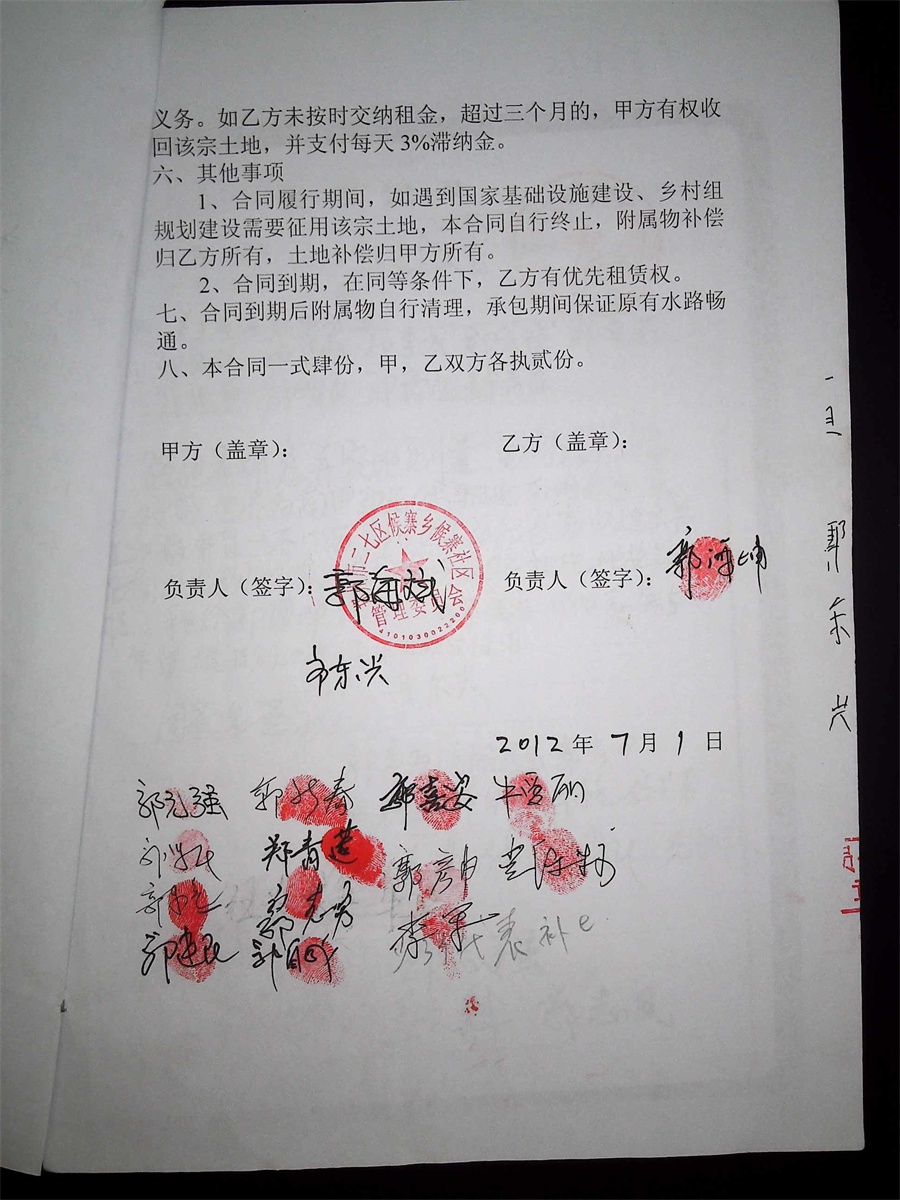 义务。如乙方未按时交纳租金，超过三个月的，甲方有权收
回该宗土地，并支付每天 3%滞纳金。
六、其他事项
1、合同履行期间，如遇到国家基础设施建设、乡村组
规划建设需要征用该宗土地，本合同自行终止，附属物补偿
归乙方所有，土地补偿归甲方所有。
2、合同到期，在同等条件下，乙方有优先租赁权。
七、合同到期后附属物自行清理，承包期间保证原有水路畅
通。
八、本合同一式肆份，甲，乙双方各执贰份。
甲方（盖章）： 乙方（盖章）：
市二七区候寨乡候寨社区
管理委员会
4101030022200
负责人（签字）： 负责人（签字）：
2012 年 7 月 1 日
郭元强
郑青莲
郭建民